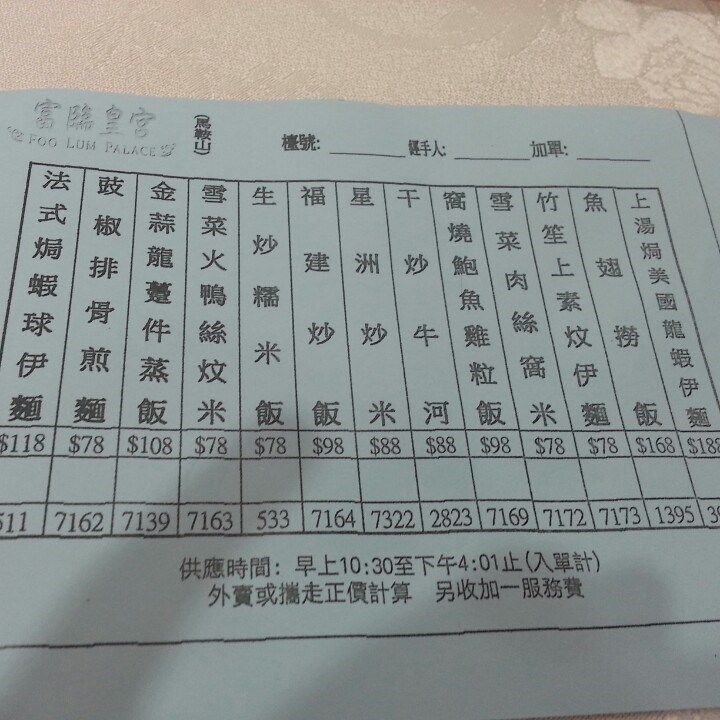 富臨皇宮
FOO LUM PALACE
(馬鞍山)
檯號:
經手人:
加單:
法式焗蝦球伊麵
豉椒排骨煎麵
金蒜龍躉件蒸飯
雪菜火鴨絲炆米
生炒糯米飯
福建炒飯
星洲炒米
干炒牛河
窩燒鮑魚雞粒飯
雪菜肉絲窩米
竹笙上素炆伊麵
魚翅撈飯
上湯焗美國龍蝦伊麵
$118 $78 $108 $78 $78 $98 $88 $88 $98 $78 $78 $168 $188
511 7162 7139 7163 533 7164 7322 2823 7169 7172 7173 1395
供應時間: 早上10:30至下午4:01止(入單計)
外賣或攜走正價計算 另收加一服務費